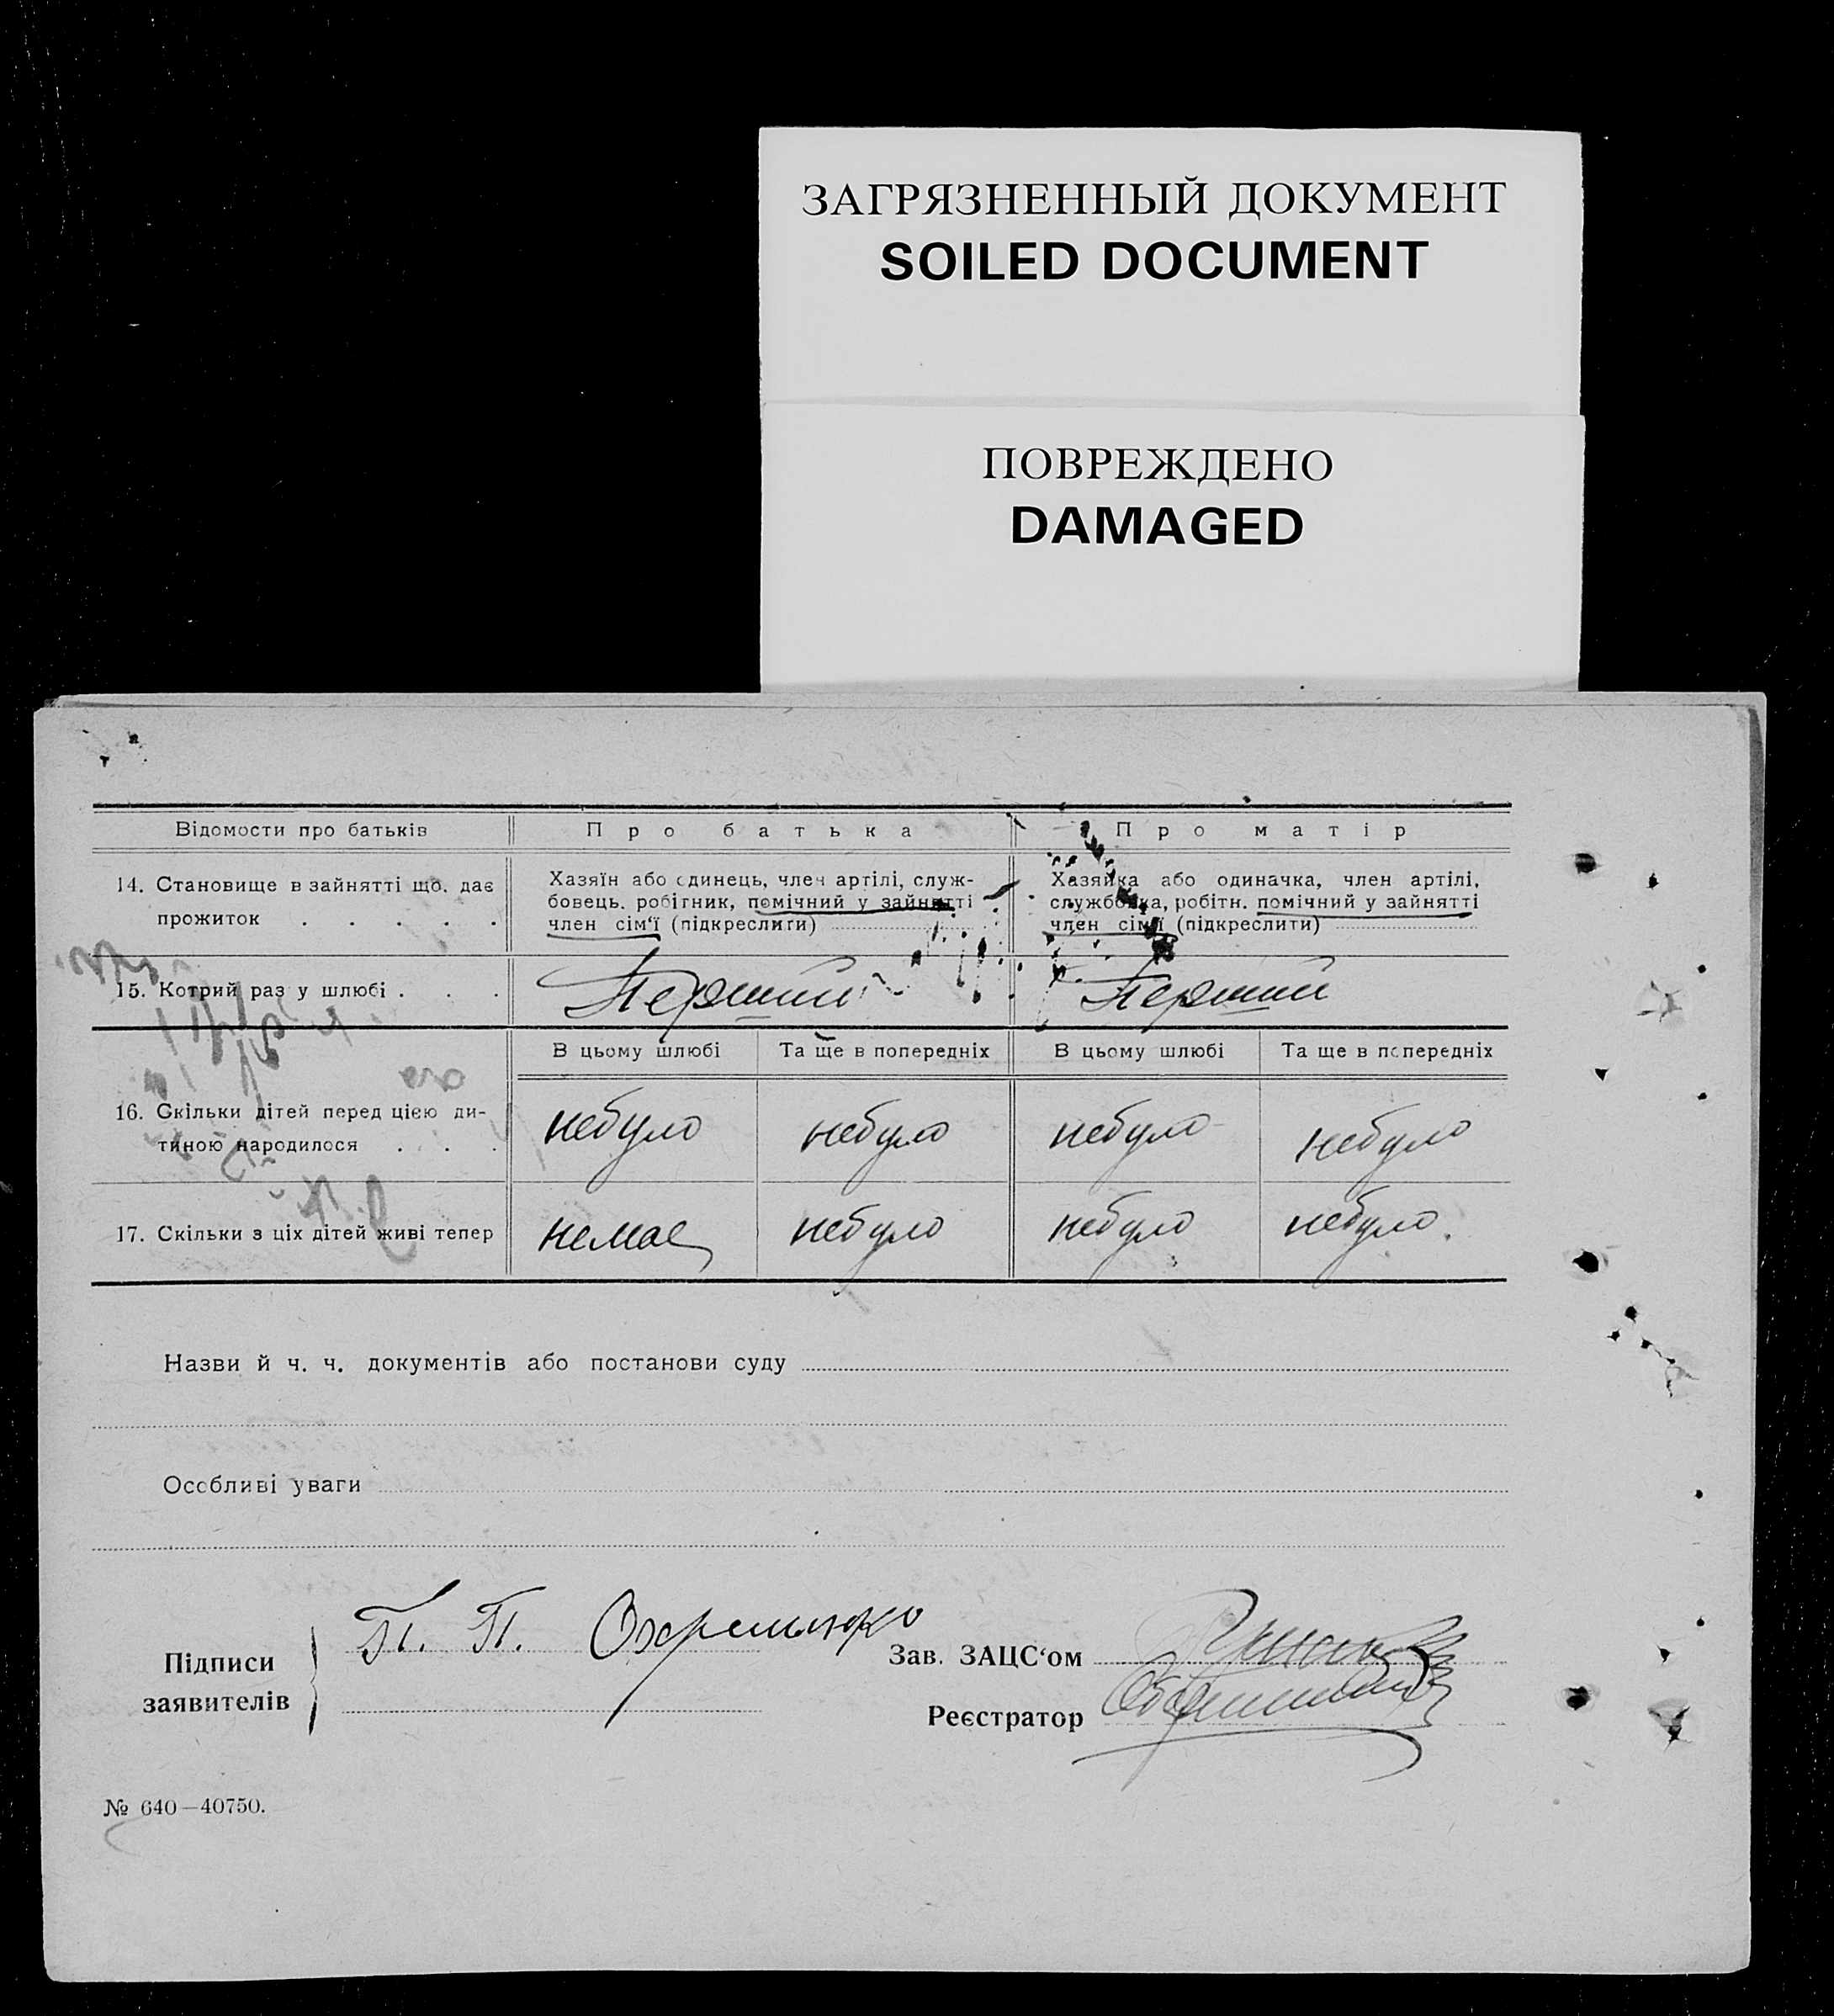 ЗАГРЯЗНЕННЫЙ ДОКУМЕНТ
SOILED DOCUMENT
ПОВРЕЖДЕНО
DAMAGED
Відомости про батьків
Про батька
Про матір
14. Становище в зайнятті що дає
прожиток . . . . .
Хазяїн або одинець, член артілі, служ-
бовець, робітник, помічний у зайнятті
член сім'ї (підкреслити)
Хазяйка або одиначка, член артілі,
службовка, робітн. помічний у зайнятті
член сім'ї (підкреслити)
15. Котрий раз у шлюбі . . .
Перший
Перший
В цьому шлюбі
Та ще в попередніх
В цьому шлюбі
Та ще в попередніх
16. Скільки дітей перед цією ди-
тиною народилося . . .
небуло
небуло
небуло
небуло
17. Скільки з ціх дітей живі тепер
немає
небуло
небуло
небуло.
Назви й ч. ч. документів або постанови суду
Особливі уваги
Підписи
заявителів
П. П.
Зав. ЗАЦС'ом
Реєстратор
№ 640—40750.